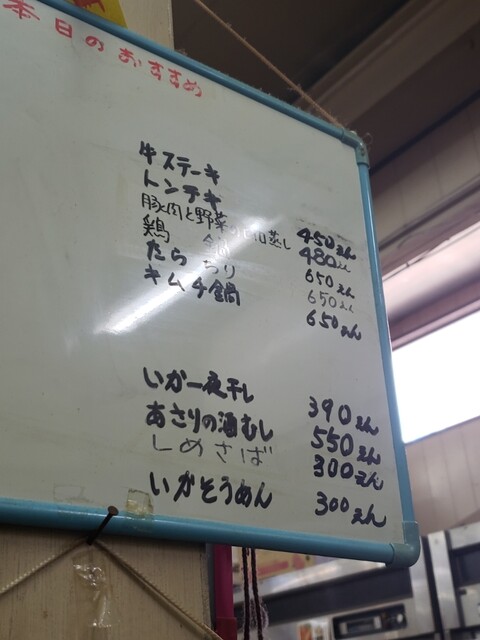 本日のおすすめ
牛ステーキ
トンテキ 450えん
豚肉と野菜の蒸し 480えん
鶏鍋 650えん
たらちり 650えん
キムチ鍋 650えん
いか一夜干し 390えん
あさりの酒むし 550えん
しめさば 300えん
いかそうめん 300えん